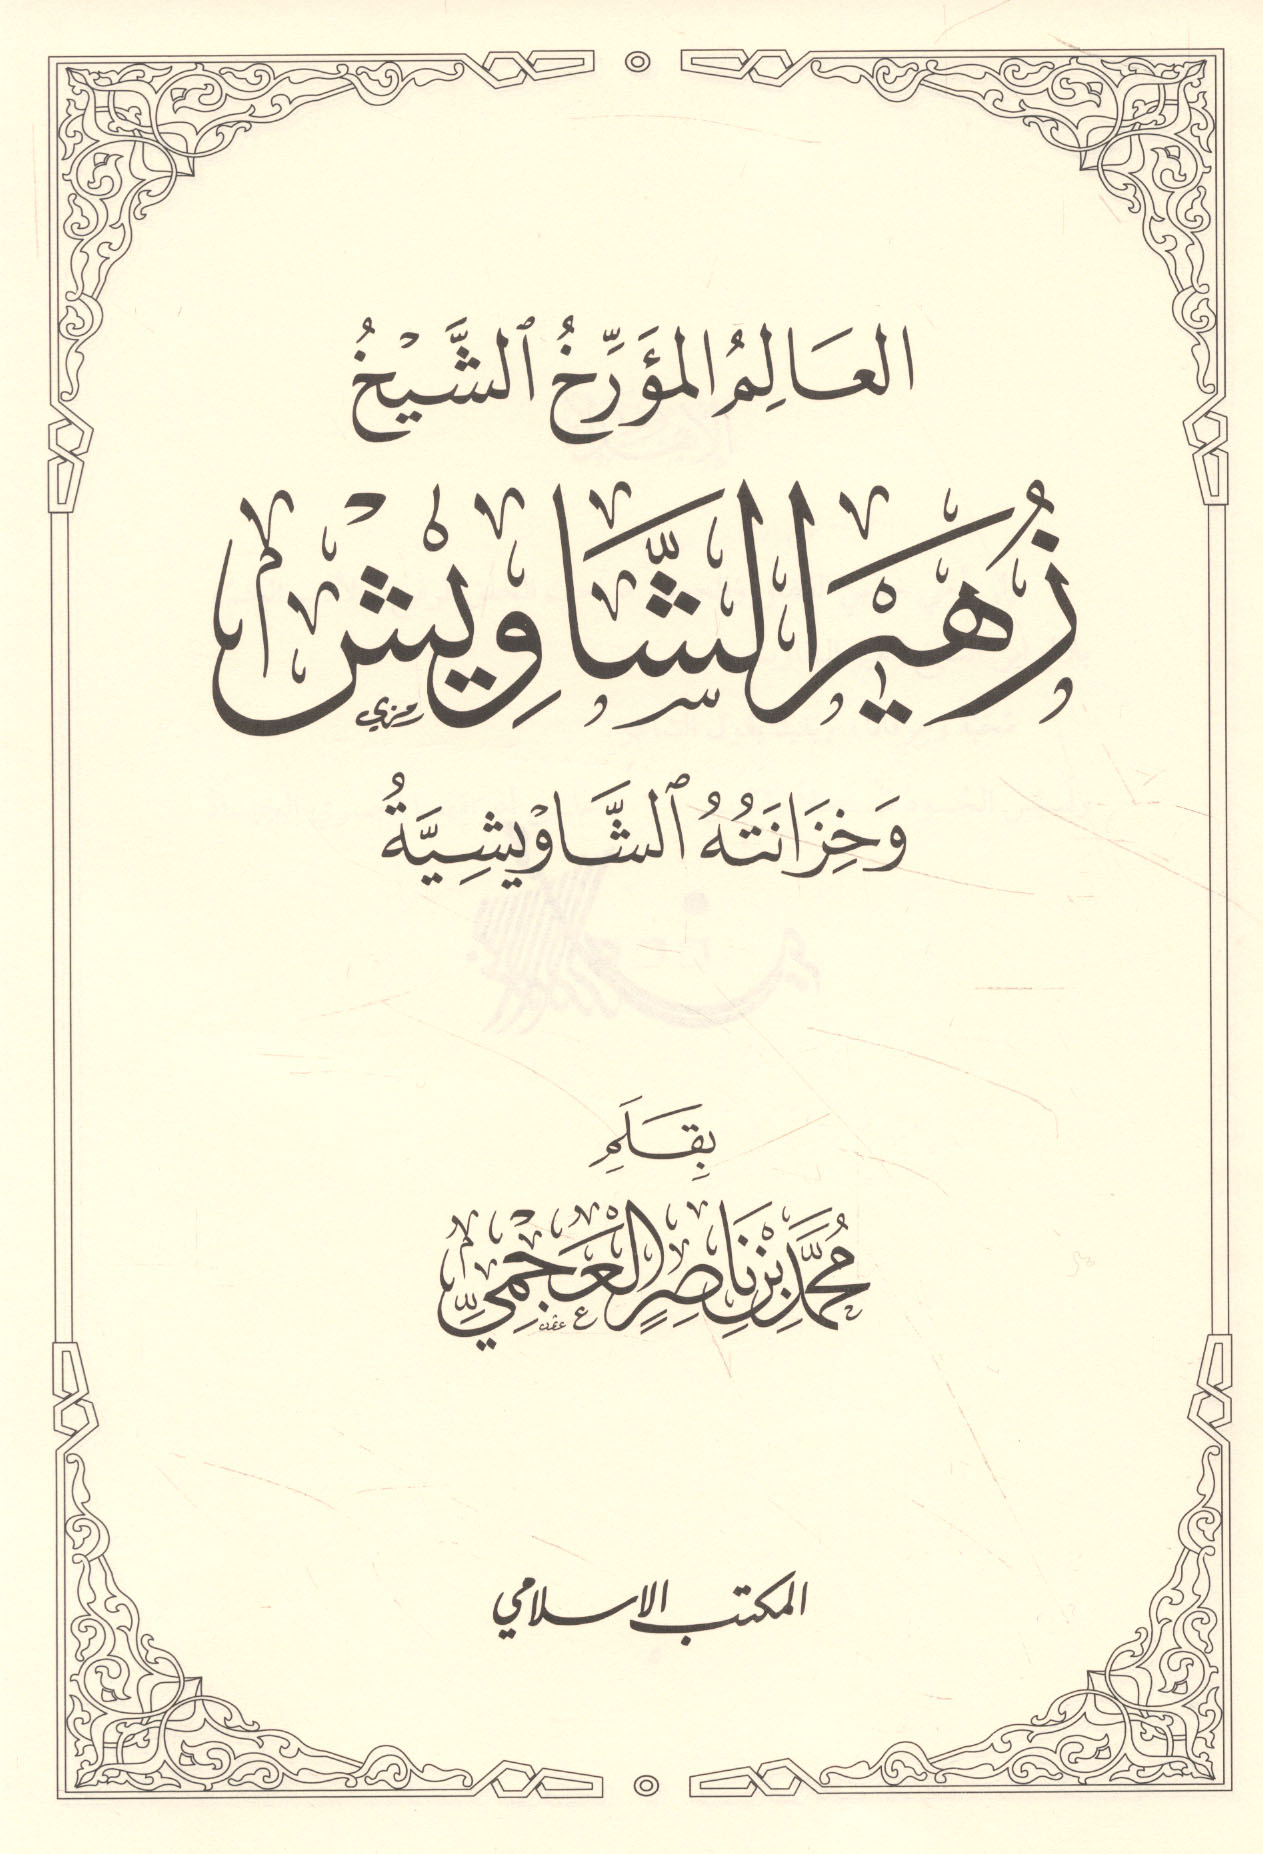 العَالِمُ المُؤَرِّخُ ٱلشَّيْخُ
زُهَيْر الشَّاوِيْش
وَخِزَانَتُهُ ٱلشَّاوْيشِيَّةُ
بِقَلَمِ
مُحَمَّد بْن نَاصِرٍ العَجْمِيِّ
المكتب الاسلامي